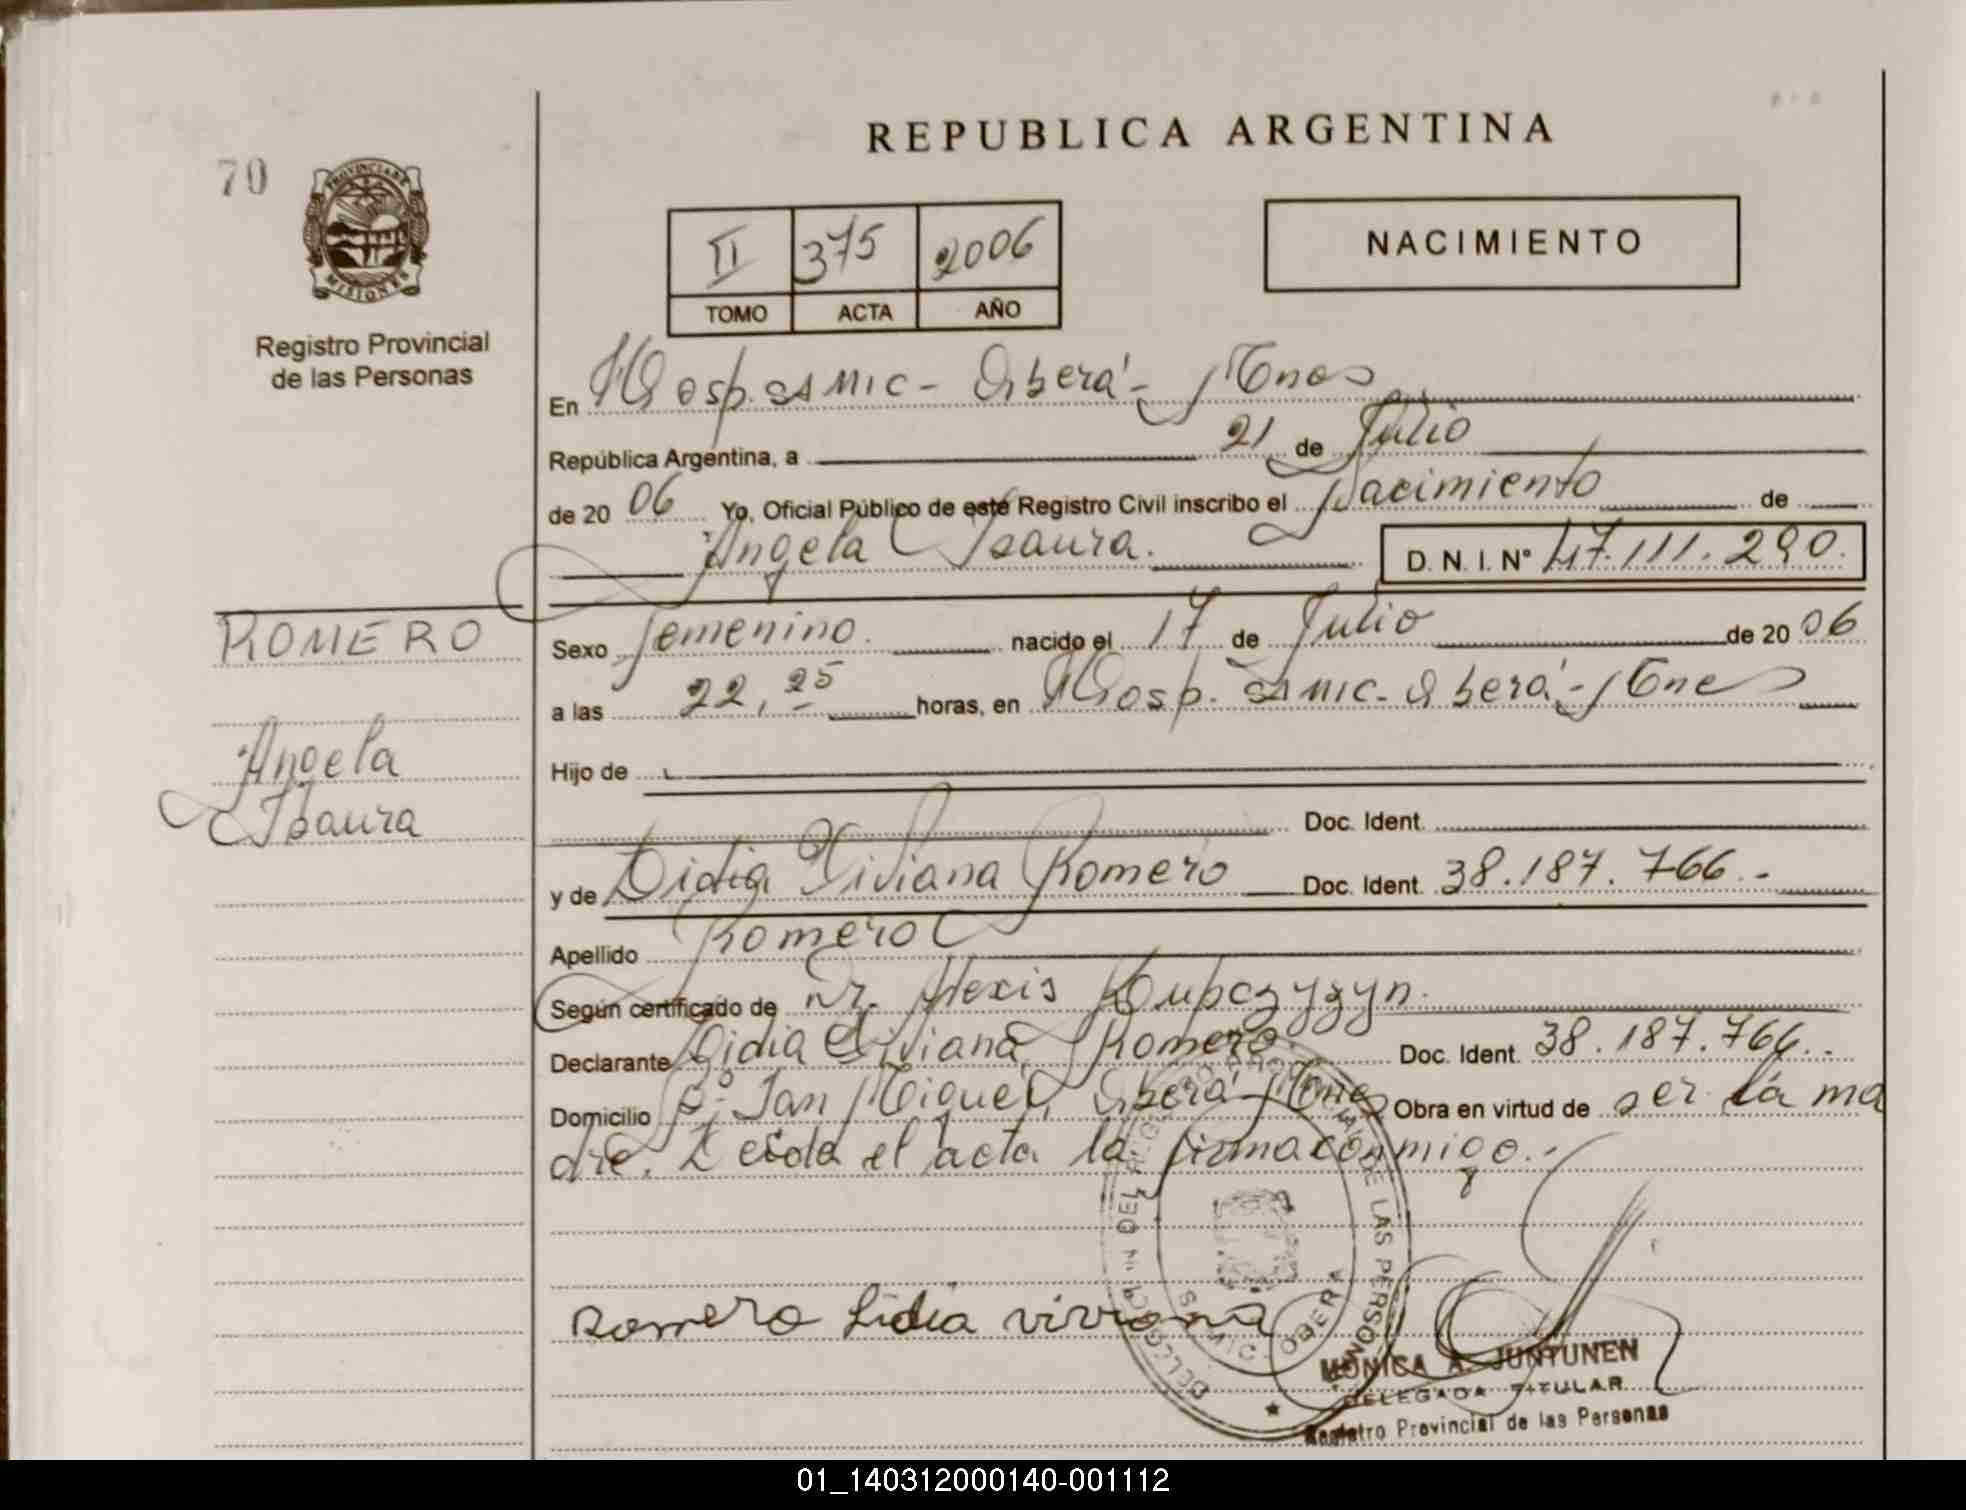 REPUBLICA ARGENTINA
70
PROVINCIA DE
MISIONES
Registro Provincial
de las Personas
II 375 2006
TOMO ACTA AÑO
NACIMIENTO
En Hosp. SAMIC - Oberá - Mnes
República Argentina, a 21 de Julio
de 20 06 Yo, Oficial Público de este Registro Civil inscribo el Nacimiento de
Angela Isaura. D. N. I. N° 47.111.290.
ROMERO
Angela
Isaura
Sexo femenino. nacido el 17 de Julio de 20 06
a las 22,25 horas, en Hosp. SAMIC - Oberá - Mnes
Hijo de
Doc. Ident.
y de Lidia Viviana Romero Doc. Ident. 38.187.766.-
Apellido Romero
Según certificado de Dr. Alexis Kupczyszyn.
Declarante Lidia Viviana Romero. Doc. Ident. 38.187.766.
Domicilio Bº San Miguel, Oberá - Mnes Obra en virtud de ser la ma
dre. Leída el acta la firma conmigo.-
Romero Lidia viviana
DE LAS PERSONAS
OBERA
MONICA A. JUNTUNEN
DELEGADA TITULAR
Registro Provincial de las Personas
01_140312000140-001112